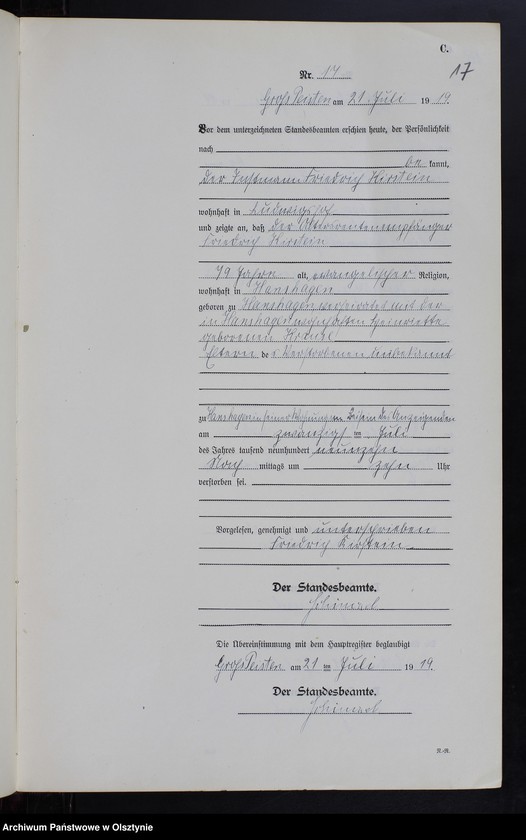 C.
17
Nr. 17
Groß Peisten am 21. Juli 1919.
Vor dem unterzeichneten Standesbeamten erschien heute, der Persönlichkeit
nach
be kannt,
der Instmann Friedrich Kirstein
wohnhaft in Ludwigshof
und zeigte an, daß der Altersrentenempfänger
Friedrich Kirstein
79 Jahre alt, evangelischer Religion,
wohnhaft in Hanshagen
geboren zu Hanshagen verheiratet mit der
in Hanshagen wohnhaften Henriette
geborenen
Eltern des Verstorbenen unbekannt
zu Hanshagen in seiner Wohnung im Beisein des Anzeigenden
am zwanzigsten Juli
des Jahres tausend neunhundert neunzehn
Nach mittags um zehn Uhr
verstorben sei.
Vorgelesen, genehmigt und unterschrieben
Friedrich Kirstein
Der Standesbeamte.
Die Übereinstimmung mit dem Hauptregister beglaubigt
Groß Peisten am 21 ten Juli 1919.
Der Standesbeamte.
R.-R.
Archiwum Państwowe w Olsztynie